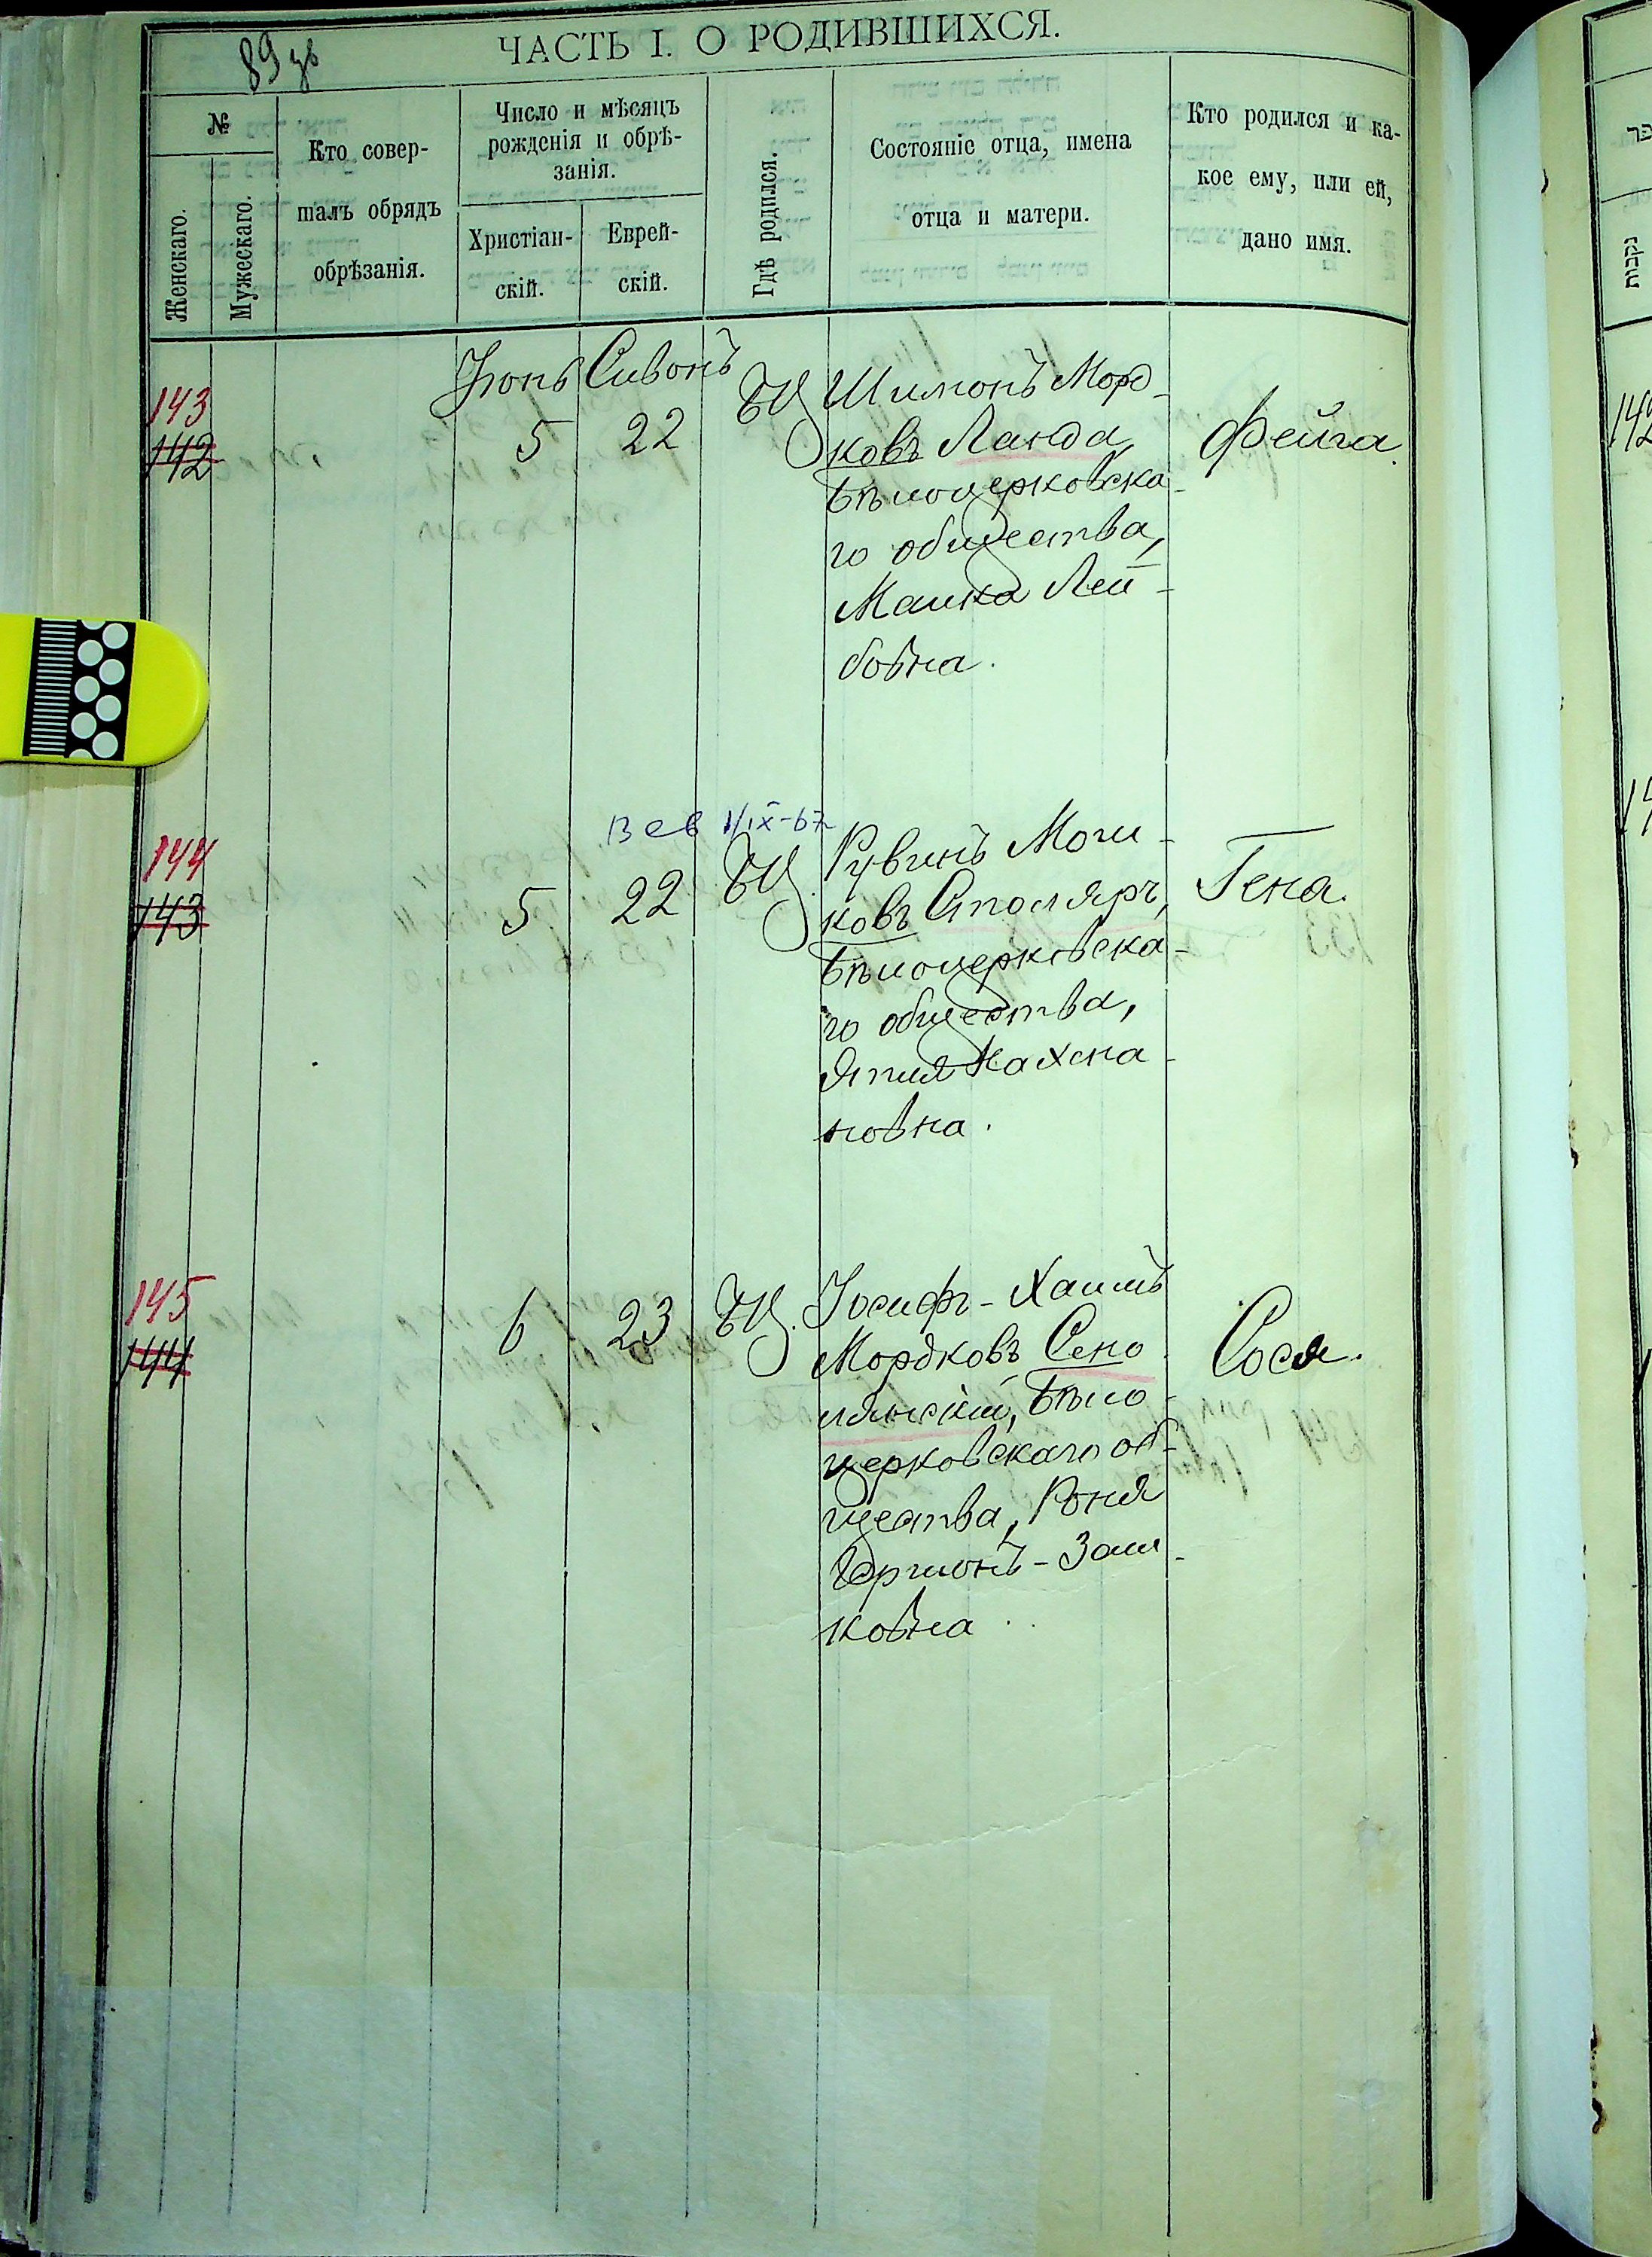 89 зв
ЧАСТЬ I. О РОДИВШИХСЯ.
№
Женскаго.
Мужескаго.
Кто совер-
шалъ обрядъ
обрѣзанія.
Число и мѣсяцъ
рожденія и обрѣ-
занія.
Христіан-
скій.
Еврей-
скій.
Гдѣ родился.
Состояніе отца, имена
отца и матери.
Кто родился и ка-
кое ему, или ей,
дано имя.
Іюнь Сивонъ
143
142
5
22
БЦ
Шимонъ Морд-
ковъ Ланда,
Бѣлоцерковска-
го общества,
Малка Лей-
бовна.
Фейга.
144
143
5
22
БЦ.
Рувинъ Мош-
ковъ Столяръ,
Бѣлоцерковска-
го общества,
Нахма-
новна.
Гена.
145
144
6
23
БЦ.
Іосифъ-Хаимъ
Мордковъ Сено
лянскій, Бѣло-
церковскаго об-
щества, Роня
Гершонъ-Зал-
ковна.
Сося.